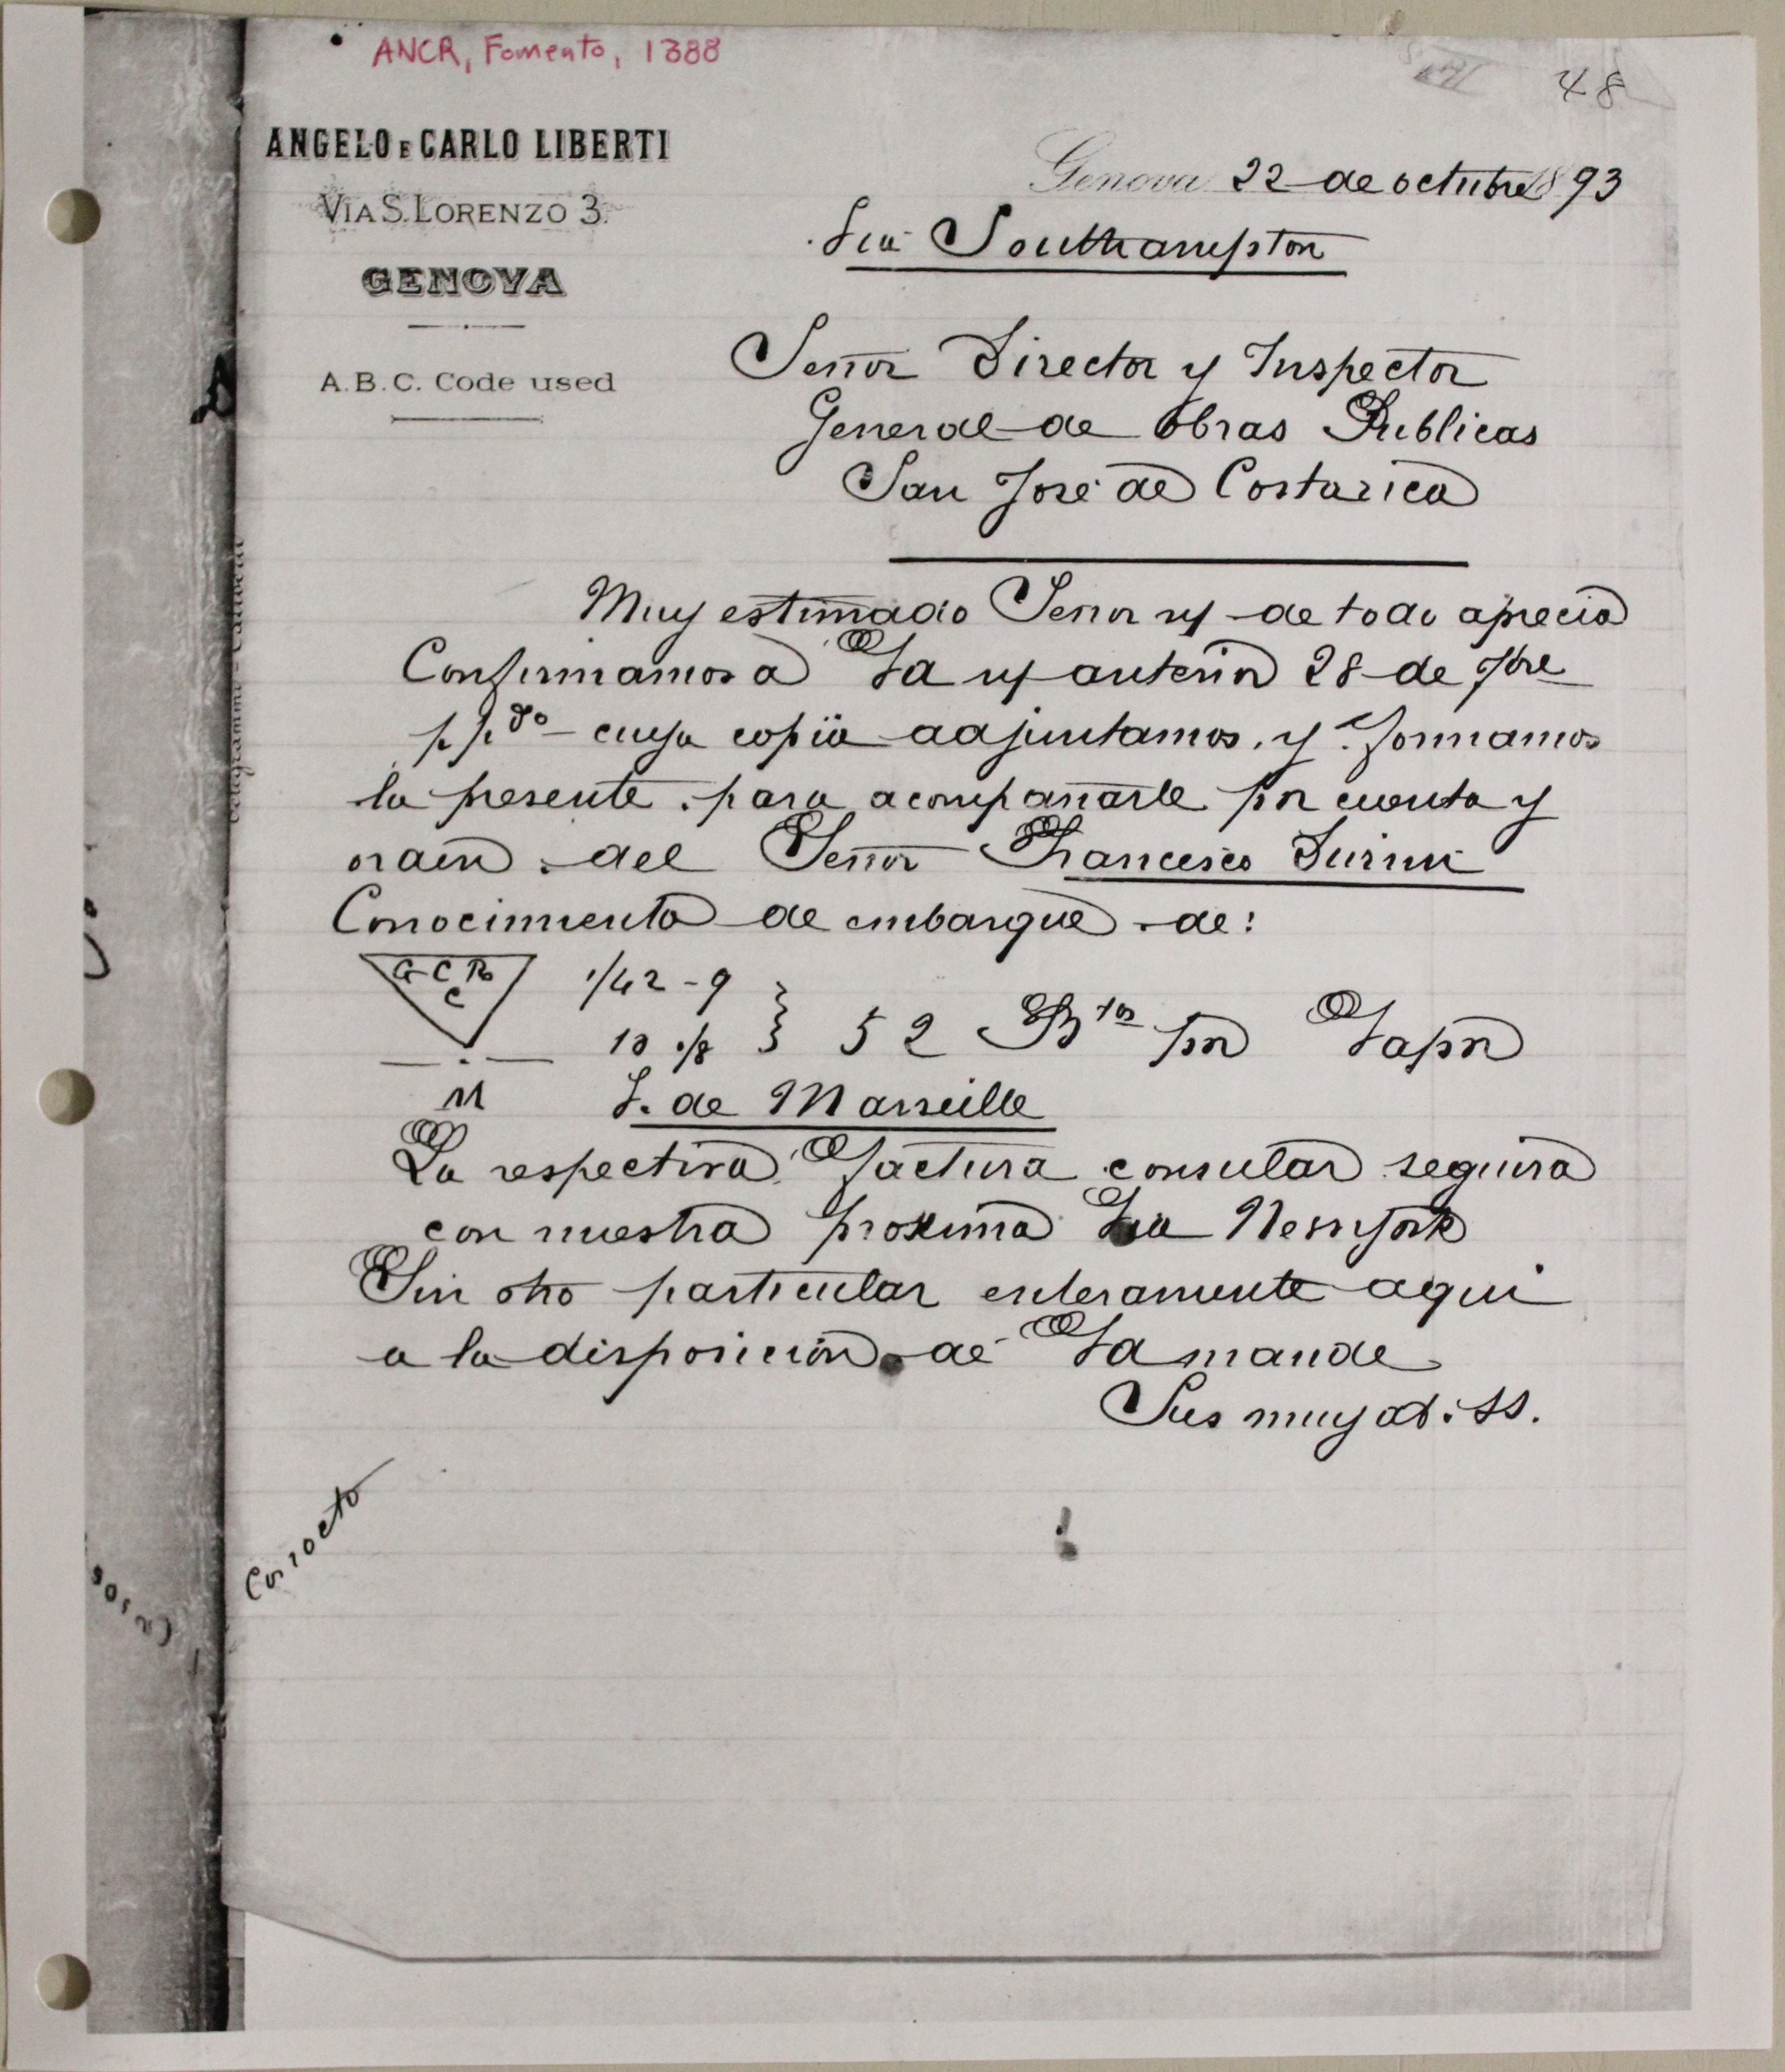 ANCR, Fomento, 1388
48
ANGELO E CARLO LIBERTI
VIA S. LORENZO 3.
GENOVA
A.B.C. Code used
Genova 22 de octubre 1893
Via Southampton
Señor Director y Inspector
General de Obras Publicas
San José de Costarica
Muy estimado Señor y de todo aprecio
Confirmamos a Vd ny anterior 28 de 7bre
p.p.do cuya copia adjuntamos, y formamos
la presente para acompañarle por cuenta y
orden del Señor Francesco Durini
Conocimiento de embarque de:
GCR
C
1/42 - 9
10 1/8 } 52 Btos por Vapor
M V. de Marseille
La respectiva factura consular seguira
con nuestra proxima via Newyork
Sin otro particular enteramente aqui
a la disposicion de Vd mande
Sus muy at. SS.
Correcto